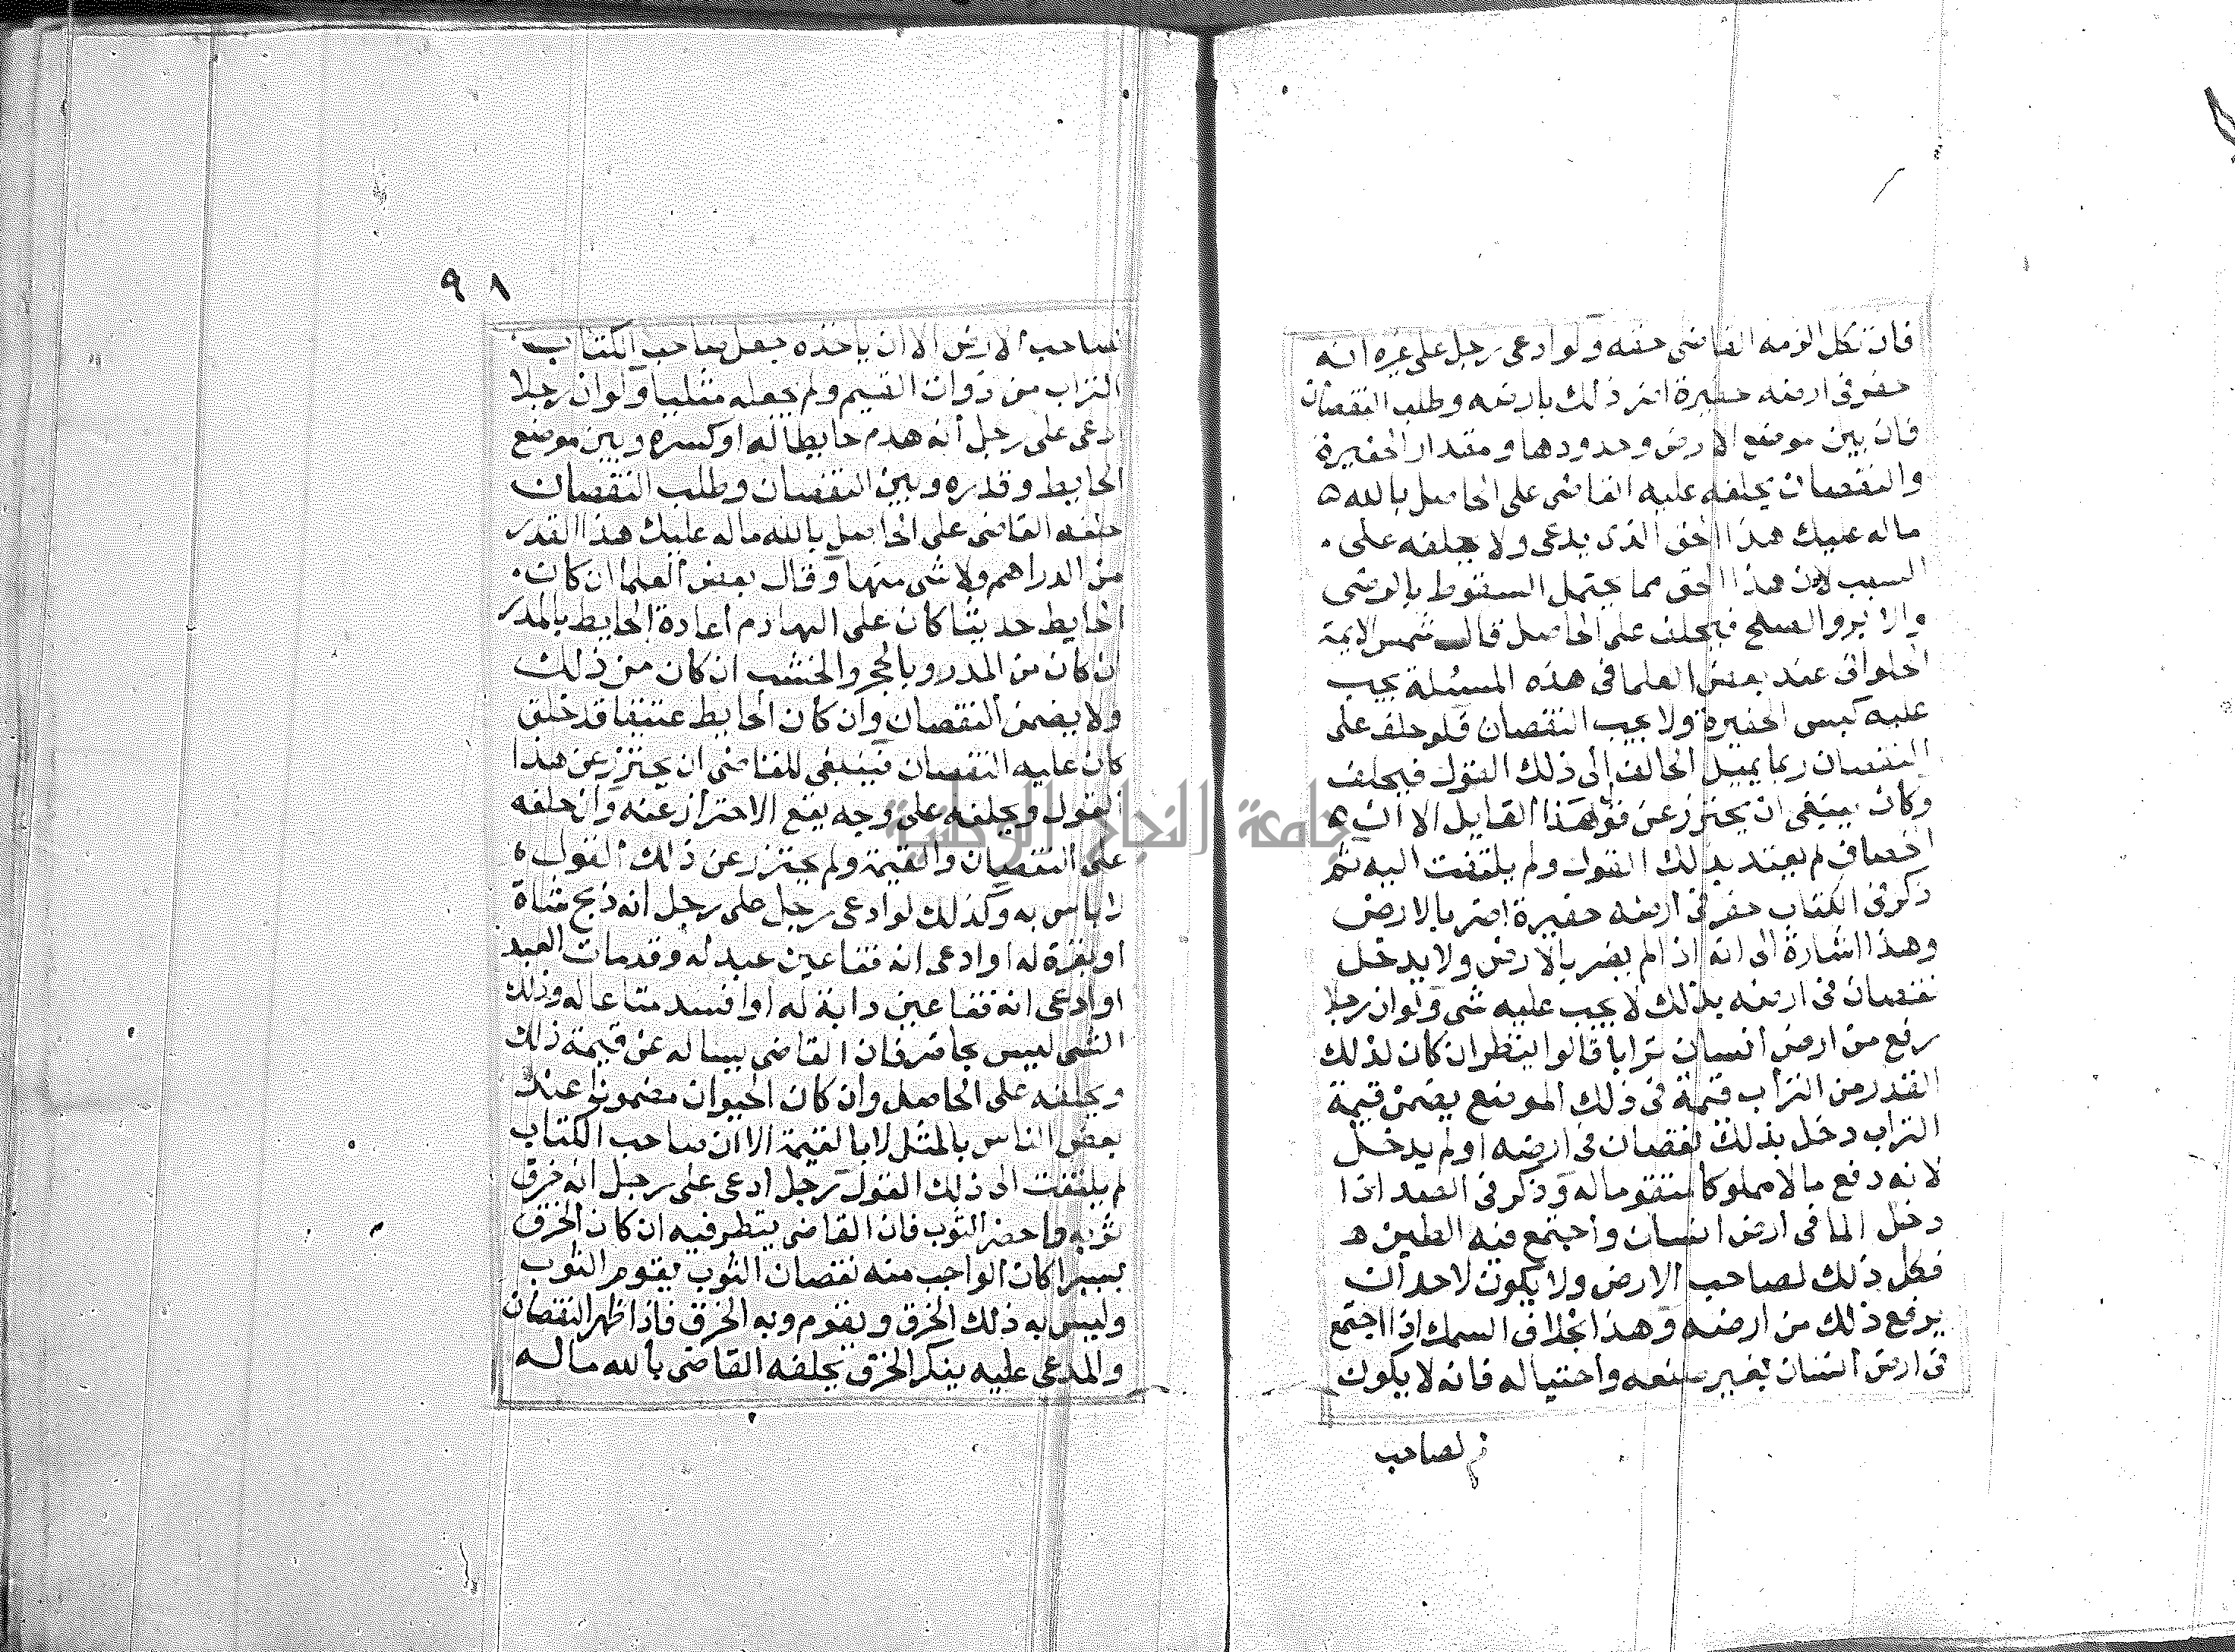 فان نكل الزمه القاضى حقه ولو ادعى رجل على غيره انه
حفر فى ارضه حفيرة اضر ذلك بارضه وطلب النقصان
فان بين موضع الارض وحدودها ومقدار الحفيرة
والنقصان يحلفه عليه القاضى على الحاصل بالله
ماله عليك هذا الحق الذى يدعى ولا يحلفه على
السبب لان هذا الحق مما يحتمل السقوط بالرضى
والابرو الصلح فيحلف على الحاصل قال شمس الايمة
الحلوانى عند بعض العلما فى هذه المسئلة يجب
عليه كبس الحفيرة ولا يجب النقصان فلو حلف على
النقصان ربما يميل الحالف الى ذلك القول فيحلف
وكان ينبغى ان يحترز عن قول هذا القايل الا ان
الخصاف لم يعتد بذلك القول ولم يلتفت اليه ثم
ذكر فى الكتاب حفر فى ارضه حفيرة اضر بالارض
وهذا اشارة الى انه اذا لم يضر بالارض ولا يدخل
نقصان فى ارضه بذلك لا يجب عليه شى ولو ان رجلا
رفع من ارض انسان ترابا قالوا ينظر ان كان لذلك
القدر من التراب قيمة فى ذلك الموضع يضمن قيمة
التراب دخل بذلك نقصان فى ارضه او لم يدخل
لانه دفع مالا مملوكا متقوما له وذكر فى اذا
دخل الما فى ارض انسان واجتمع فيه الطين
فكل ذلك لصاحب الارض ولا يكون لاحد ان
يرفع ذلك من ارضه وهذا بخلاف السمك اذا اجتمع
فى ارض انسان بغير صنعه واحتياله فانه لا يكون
لصاحب
٩١
لصاحب الارض الا ان ياخذه جعل صاحب الكتاب
التراب من ذوات القيم ولم يجعله مثليا ولو ان رجلا
ادعى على رجل انه هدم حايطا له او كسره وبين موضع
الحايط وقدره وبين النقصان وطلب النقصان
حلفه القاضى على الحاصل بالله ماله عليك هذا القدر
من الدراهم ولا شى منها وقال بعض العلما ان كان
الحايط حديثا كان على الهادم اعادة الحايط بالمدر
ان كان من المدر وبالحجر والخشب ان كان من ذلك
ولا يضمن النقصان وان كان الحايط عتيقا قد خلق
كان عليه النقصان فينبغى للقاضى ان يحترز عن هذا
القول ويحلفه على وجه يقع الاحتراز عنه وان حلفه
على النقصان والقيمة ولم يحترز عن ذلك القول
لا باس به وكذلك لو ادعى رجل على رجل انه ذبح شاة
او بقرة له او ادعى انه فقا عين عبد له وقد مات العبد
او ادعى انه فقا عين دابة له او افسد متاعا له وذلك
الشى ليس بحاضر فان القاضى يساله عن قيمة ذلك
ويحلفه على الحاصل وان كان الحيوان مضمونا عند
بعض الناس بالمثل لا بالقيمة الا ان صاحب الكتاب
لم يلتفت الى ذلك القول رجل ادعى على رجل انه خرق
ثوبه واحضر الثوب فان القاضى ينظر فيه ان كان الخرق
يسيرا كان الواجب منه نقصان الثوب يقوم الثوب
وليس به ذلك الخرق ويقوم وبه الخرق فاذا ظهر النقصان
والمدعى عليه ينكر الخرق يحلفه القاضى بالله ماله
جامعة النجاح الوطنية